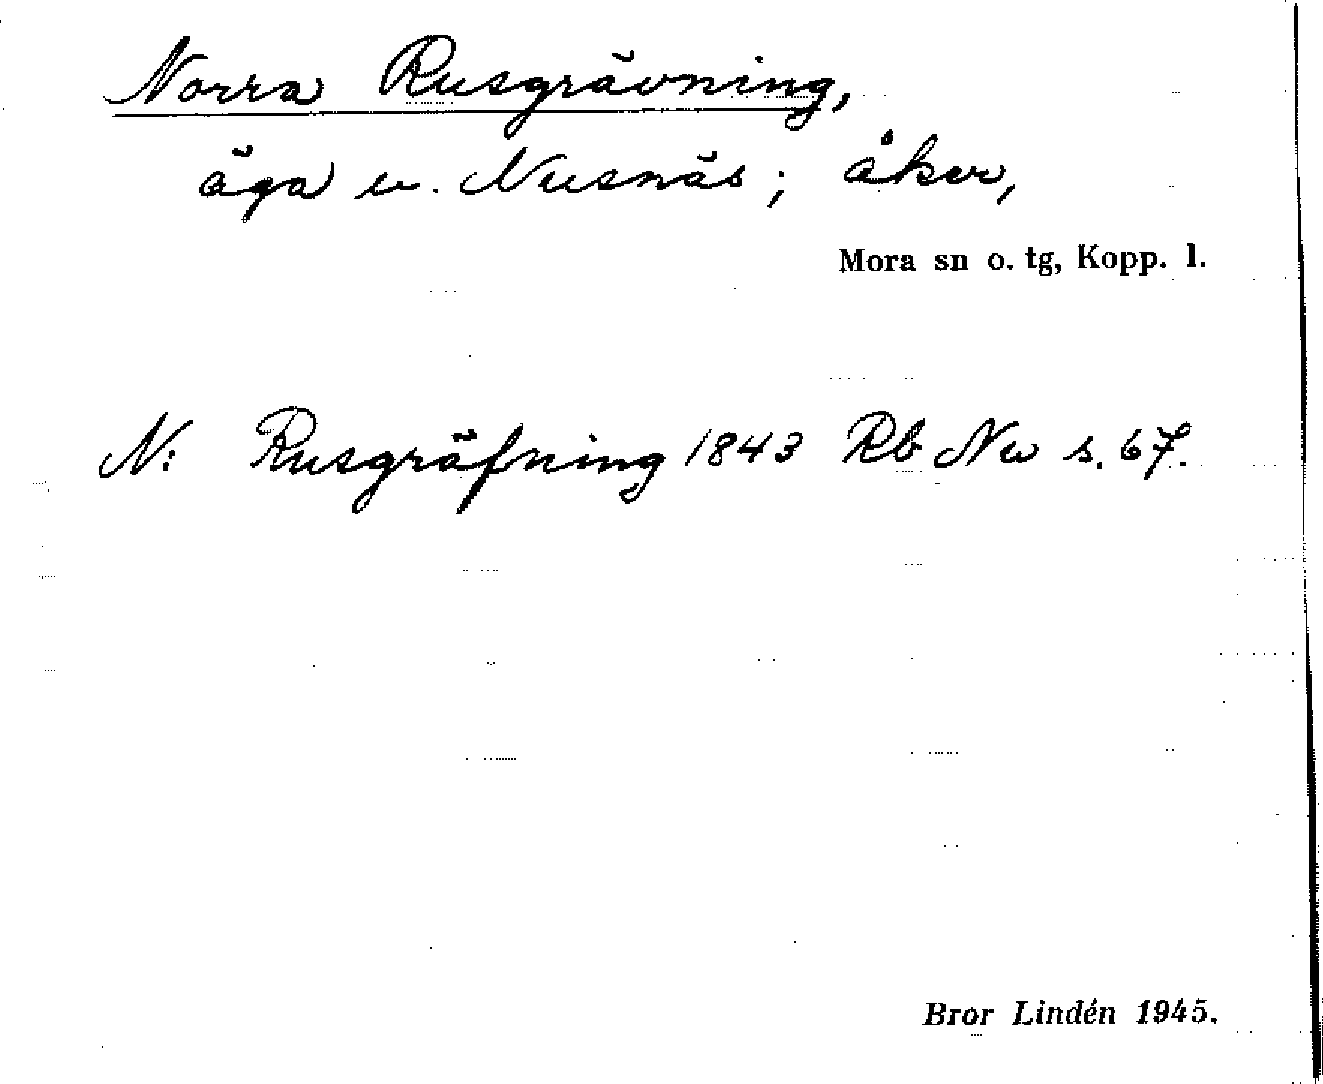 Norra Rusgrävning,
äga u. Nusnäs; åker,
Mora sn o. tg, Kopp. l.
N: Rusgräfning 1843 Rb Nu s. 67.
Bror Lindén 1945.